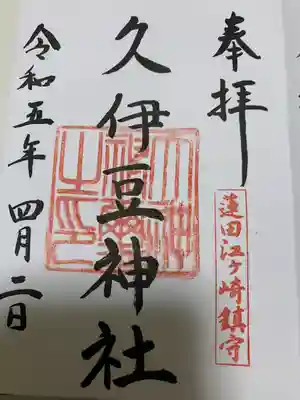 奉拝
蓮田江ヶ崎鎮守
久伊豆神社
令和五年 四月 二日